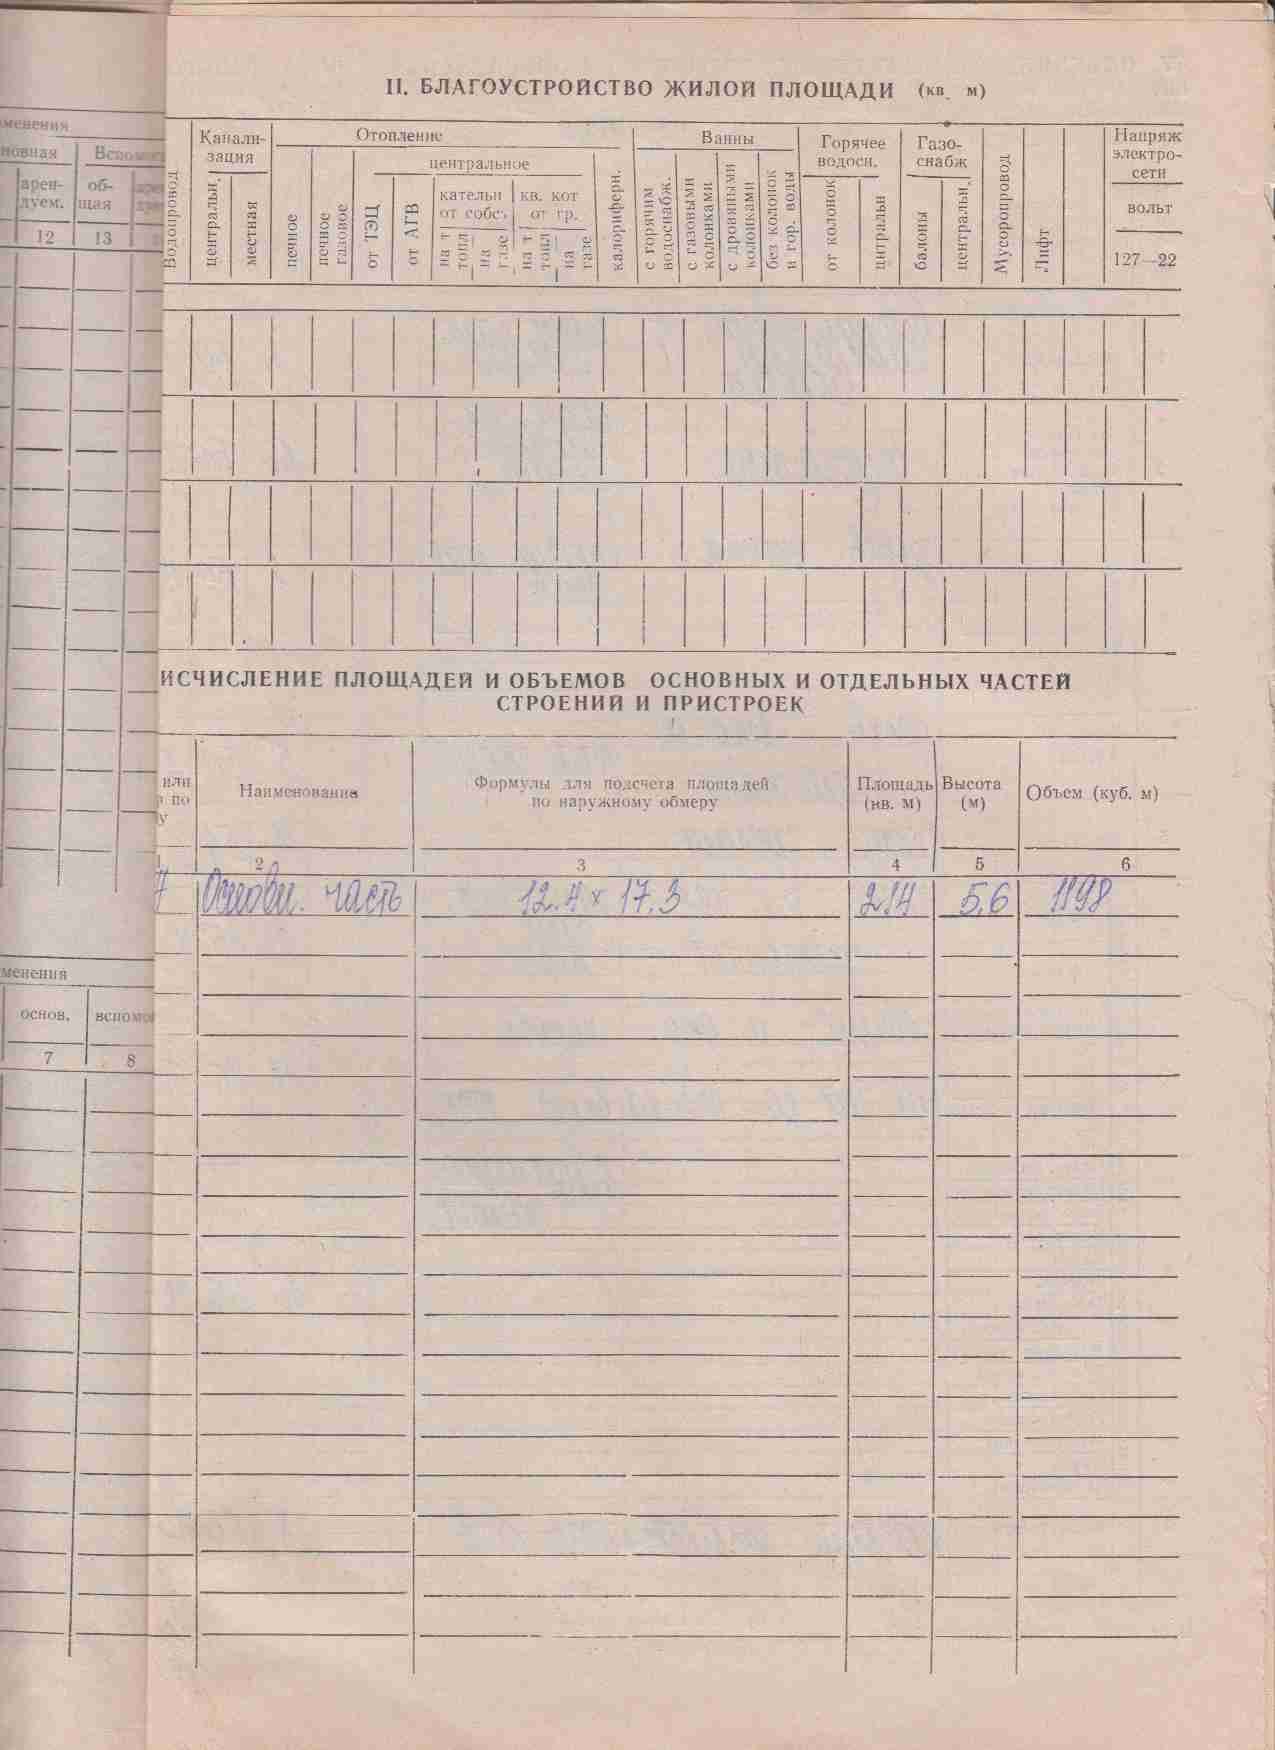 II. БЛАГОУСТРОЙСТВО ЖИЛОЙ ПЛОЩАДИ (кв. м)
менения
новная Вспомог
арен-
дуем.
об-
щая
12 13
Водопровод
Канали-
зация
центральн.
местная
Отопление
печное
печное
газовое
центральное
от ТЭЦ
от АГВ
кательн
от собс
на т
топл
на
газе
кв. кот
от гр.
на т
топл
на
газе
калориферн.
Ванны
с горячим
водоснабж.
с газовыми
колонками
с дровяными
колонками
без колонок
и гор. воды
Горячее
водосн.
от колонок
цнтральн
Газо-
снабж
балоны
центральн.
Мусоропровод
Лифт
Напряж
электро-
сети
вольт
127—22
ИСЧИСЛЕНИЕ ПЛОЩАДЕЙ И ОБЪЕМОВ ОСНОВНЫХ И ОТДЕЛЬНЫХ ЧАСТЕЙ
СТРОЕНИЙ И ПРИСТРОЕК
или
по
у
Наименование
Формулы для подсчета площадей
по наружному обмеру
Площадь
(кв. м)
Высота
(м)
Объем (куб. м)
1 2 3 4 5 6
Основн. часть 12.4 x 17.3 214 5,6 1198
менения
основ. вспомо
7 8